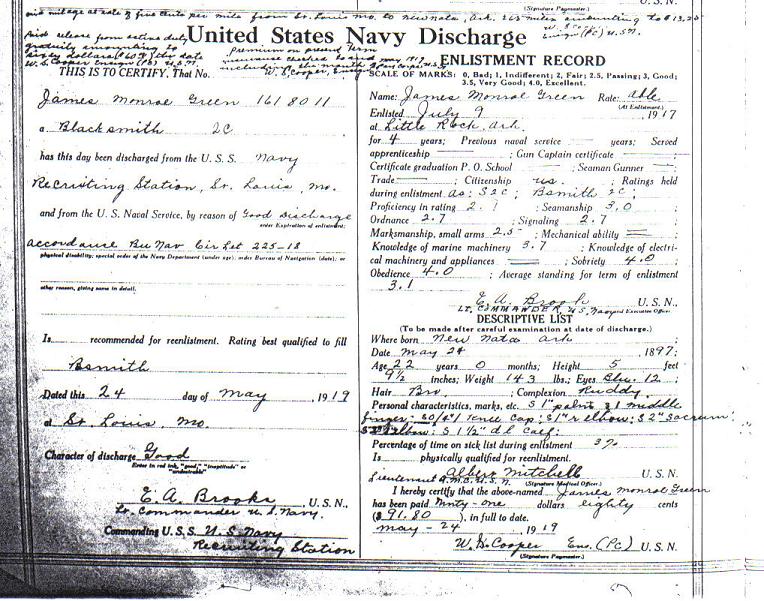 (Signature Paymaster.)
and mileage at rate of five cents per mile from St. Louis Mo. to Newnata, Ark. 265 miles amounting to $13.25
W. S. Cooper
Ensign (PC) U.S.N.
Paid release from active duty
gratuity amounting to
sixty dollars ($60) this date
W. S. Cooper Ensign (PC) U.S.N.
United States Navy Discharge
premium on present Term
insurance checked to and
including the month May 1919
W. S. Cooper, Ensign
THIS IS TO CERTIFY, That No.
James Monroe Green 161 80 11
a Blacksmith 2C
has this day been discharged from the U. S. S. Navy
Recruiting Station, St. Louis, Mo.
and from the U. S. Naval Service, by reason of Good Discharge
order Expiration of enlistment;
accordance Bu Nav Cir Let 225-18
physical disability; special order of the Navy Department (under age); order Bureau of Navigation (date); or
other reason, giving same in detail.
Is recommended for reenlistment. Rating best qualified to fill
Bsmith
Dated this 24 day of May , 1919
at St. Louis, Mo.
Character of discharge Good
Enter in red ink, "good," "inaptitude" or
"undesirable"
E. A. Brooks , U. S. N.,
Lt. Commander U.S. Navy.
Commanding U. S. S. U. S. Navy
Recruiting Station
ENLISTMENT RECORD
SCALE OF MARKS: 0, Bad; 1, Indifferent; 2, Fair; 2.5, Passing; 3, Good;
3.5, Very Good; 4.0, Excellent.
Name: James Monroe Green Rate:
(At Enlistment.)
Enlisted July 9 1917
at Little Rock, Ark.
for 4 years; Previous naval service — years; Served
apprenticeship — ; Gun Captain certificate
Certificate graduation P. O. School ; Seaman Gunner —
Trade — ; Citizenship U.S. ; Ratings held
during enlistment as: S2C; Bsmith 2C;
Proficiency in rating 2.1 Seamanship 3.0 ;
Ordnance 2.7 ; Signaling 2.7 ;
Marksmanship, small arms 2.5 ; Mechanical ability — ;
Knowledge of marine machinery 3.7 ; Knowledge of electri-
cal machinery and appliances — ; Sobriety 4.0
Obedience 4.0 ; Average standing for term of enlistment
3.1
E. A. Brooks U. S. N.,
LT. COMMANDER, U.S. Navy and Executive Officer
DESCRIPTIVE LIST
(To be made after careful examination at date of discharge.)
Where born New Nata Ark
Date May 24 1897;
Age 22 years 0 months; Height 5 feet
9½ inches; Weight 143 lbs.; Eyes Blu. 12.
Hair Bro ; Complexion Ruddy
Personal characteristics, marks, etc. S 1" palm & 1 middle
finger: Knee Cap; S 1" r elbow: S 2" sacrum
elbow: S 1½" dl calf:
Percentage of time on sick list during enlistment 3%
Is physically qualified for reenlistment.
Albert Mitchell U. S. N.
Lieutenant M.C. U.S.N. (Signature Medical Officer.)
I hereby certify that the above-named James Monroe Green
has been paid Ninty-one dollars eighty cents
($ 91.80 ), in full to date.
May-24 , 1919
W. S. Cooper Ens. (PC) U. S. N.
(Signature Paymaster.)